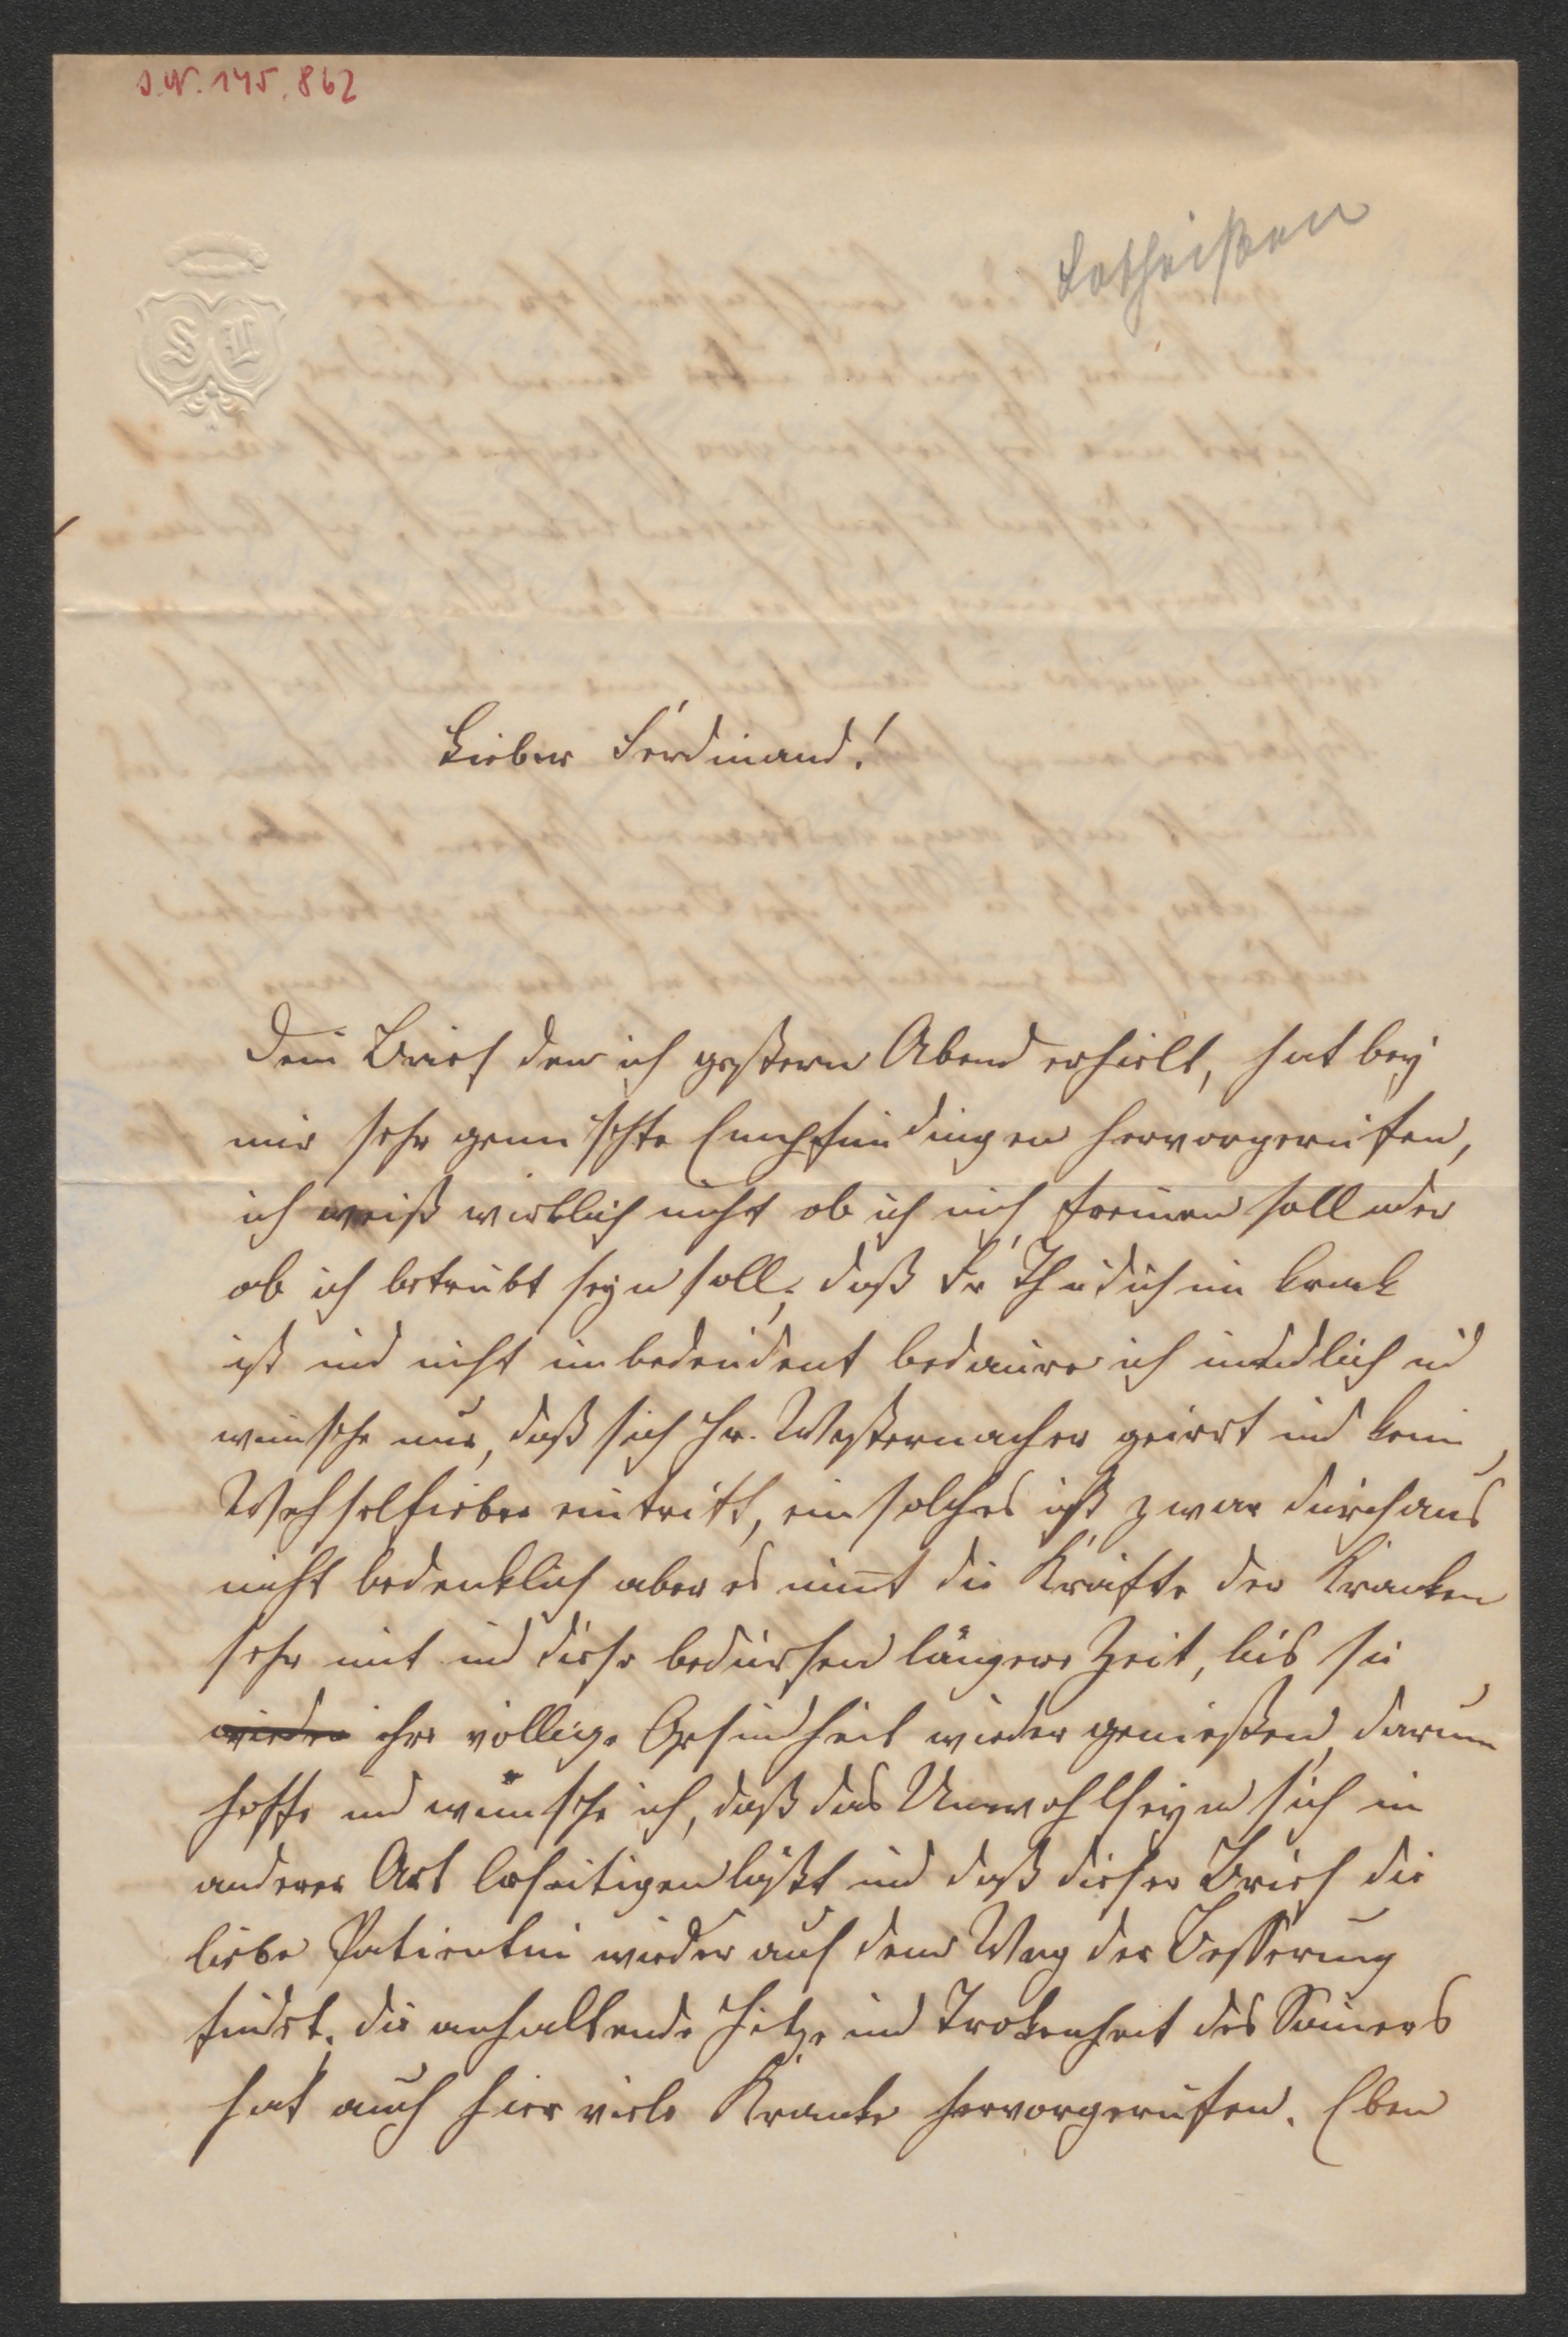 I.N. 145.862
Lotheißen
S L
Lieber Ferdinand!
Dein Brief den ich gestern Abend erhielt, hat bey
mir sehr gemischte Empfindungen hervorgerufen,
ich weiß wirklich nicht ob ich mich freuen soll oder
ob ich betrübt seyn soll; daß Fr Thudichum krank
ist und nicht unbedeudent bedaure ich unendlich und
wünsche nur, daß sich Hr. Westernacher geirrt und kein
Wechselfieber eintritt, ein solches ist zwar durchaus
nicht bedenklich aber es nim̅t die Kräfte der Kranken
sehr mit und diese bedürfen längere Zeit, bis sie
wieder ihre völlige Gesundheit wieder genießen, darum
hoffe und wünsche ich, daß das Unwohlseyn sich in
anderer Art beseitigen läßt und daß dieser Brief die
liebe Patientin wieder auf dem Weg der Besserung
findet. die anhaltende Hitze und Trokenheit des Som̅ers
hat auch hier viele Kranke hervorgerufen. Eben